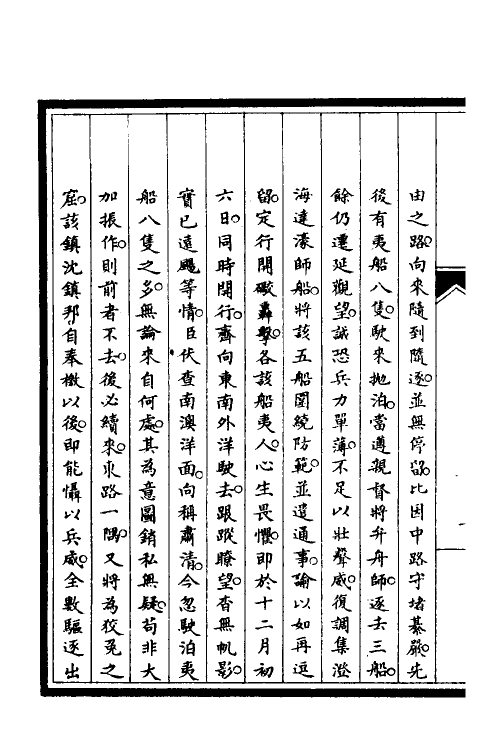 由之路。向來隨到隨逐。並無停留。比因中路守堵綦嚴。先
後有夷船八隻。駛來拋泊。當遵親督將弁舟師。逐去三船。
餘仍遷延觀望。誠恐兵力單薄。不足以壯聲威。復調集澄
海達濠師船。將該五船圍繞防範。並遣通事。諭以如再逗
留。定行開礮轟擊。各該船夷人。心生畏懼。即於十二月初
六日。同時開行。齊向東南外洋駛去。跟蹤瞭望。杳無帆影。
實已遠颺等情。臣伏查南澳洋面。向稱肅清。今忽駛泊夷
船八隻之多。無論來自何處。其為意圖銷私無疑。苟非大
加振作。則前者不去。後必續來。東路一隅。又將為狡兔之
窟。該鎮沈鎮邦自奉檄以後。即能懾以兵威。全數驅逐出